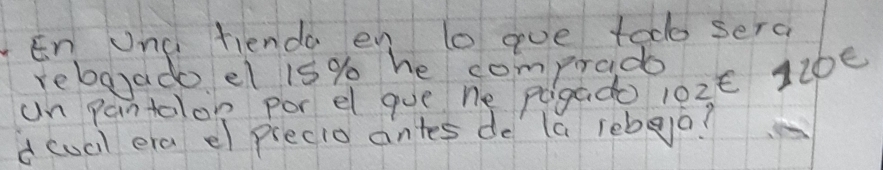 En una tienda en lo que todo sera
rebajado el 15% he comprado
un pantalon por el que he pagado 102€ 120€
¿cual era el precio antes de la rebaja?